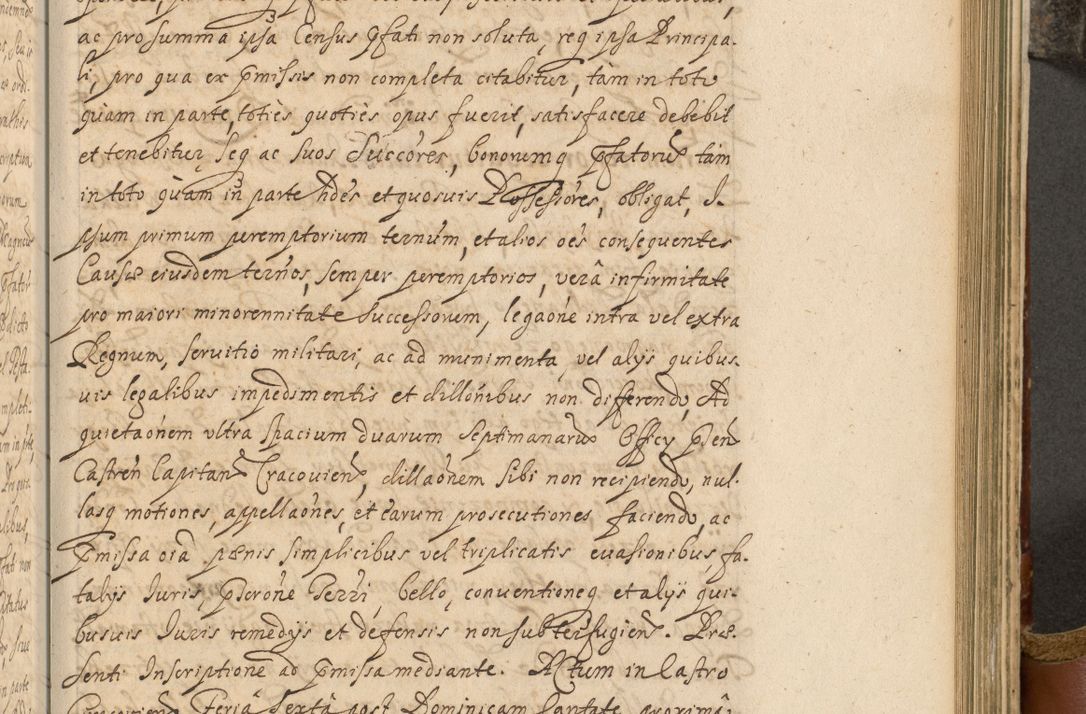 ac pro summa ipsa Census pfati non soluta, req ipsa Principa-
li, pro qua ex pmissis non completa citabitur, tàm in toto
quàm in parte, toties quoties opus fuerit, satisfacere debebit
et tenebitur, seq ac suos Succóres, bonorumq pfatoru tàm
in toto quàm in parte hdes et quosuis Possessores, obligat, I-
psum primum peremptorium ternum, et alios oes consequentes
Causæ eiusdem terños, semper peremptorios, verâ infirmitate
pro maiori minorennitate Successorum, legaóne intra vel extra
Regnum, servitio militari, ac ad munimenta, vel alys quibus-
uis legalibus impedimentis et dillónibus non differendo, Ad
quietaónem vltra spacium duarum septimanaru Officy psen
Castreñ Capitan Cracovien, dillaónem sibi non recipiendo, nul-
lasq motiones, appellaónes, et earum prosecutiones faciendo, ac
pmissa oia pænis simplicibus vel triplicatis euasionibus, fa-
talys Juris, pscróne Terri, bello, conventioneq et alys qui-
busuis Juris remedys et defensis non subterfugien. Præ-
senti Inscriptione ad pmissa mediante. Actum in Castro
Feria Sexta post Dominicam Cantate proximâ